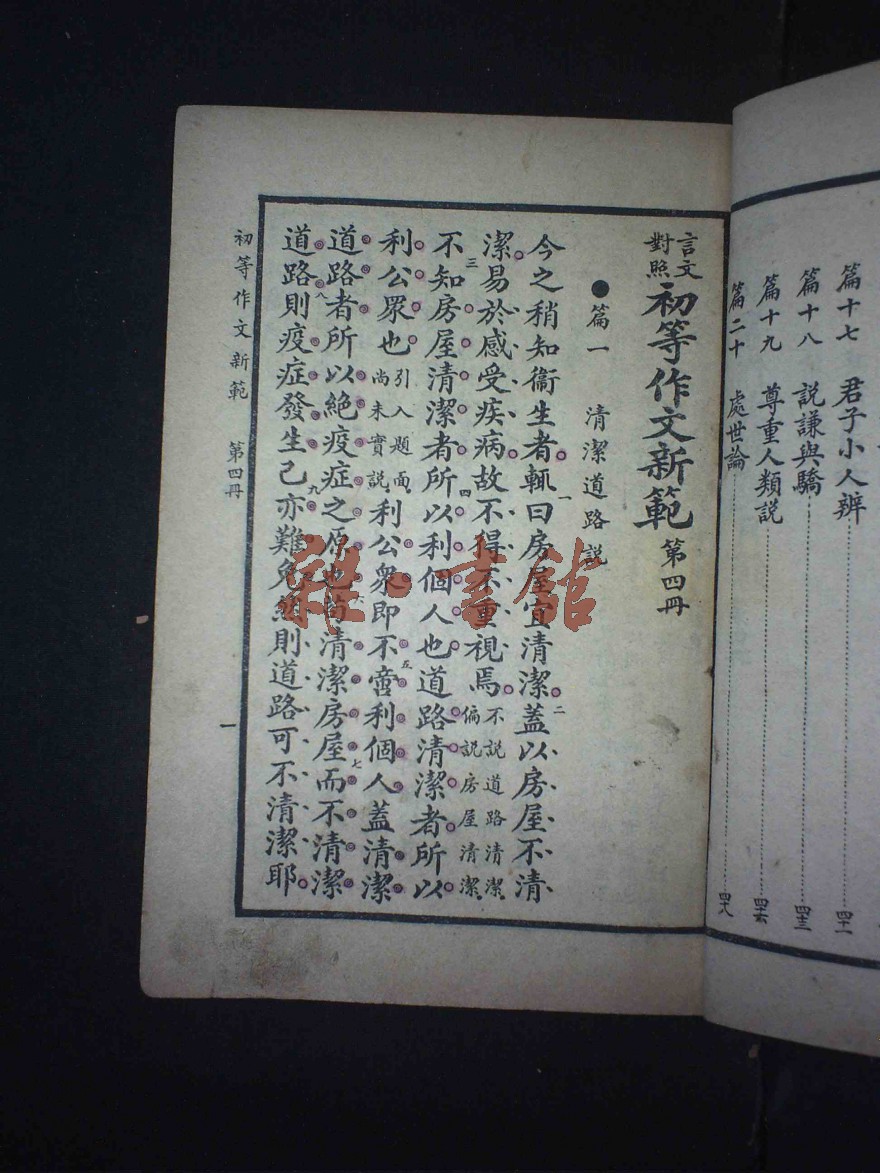 篇十七 君子小人辨 四十一
篇十八 說謙與驕 四十三
篇十九 尊重人類說 四十六
篇二十 處世論 四十八
言文對照 初等作文新範 第四冊
●篇一 清潔道路說
今之稍知衞生者輒曰房屋宜清潔蓋以房屋不清
潔易於感受疾病故不得不重視焉不說道路清潔偏說房屋清潔
不知房屋清潔者所以利個人也道路清潔者所以
利公眾也引入題面尚未實說利公眾即不啻利個人蓋清潔
道路者所以絕疫症之原也苟清潔房屋而不清潔
道路則疫症發生己亦難免然則道路可不清潔耶
初等作文新範 第四冊
一
雜·書館